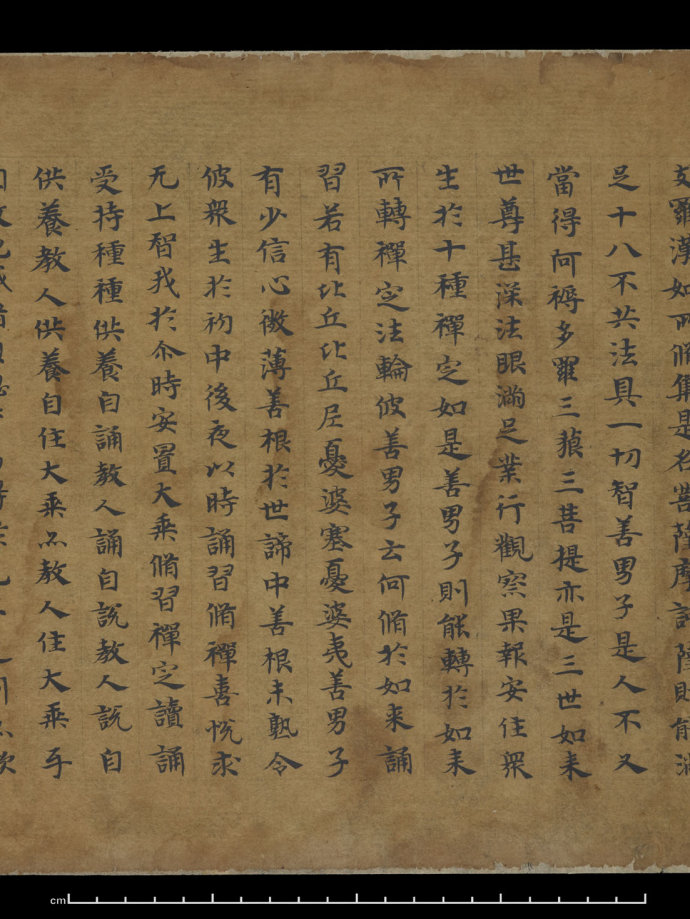 支羅漢如所脩集是名菩薩摩訶薩則能滿
足十八不共法具一切智善男子是人不久
當得阿耨多羅三藐三菩提亦是三世如来
世尊甚深法眼滿足業行觀察果報安住衆
生於十種禪定如是善男子則能轉於如来
所轉禪定法輪彼善男子云何脩於如来誦
習若有比丘比丘尼憂婆塞憂婆夷善男子
有少信心微薄善根於世諦中善根未熟令
彼衆生於初中後夜以時誦習脩禪喜恱求
无上智我於尒時安置大乘脩習禪定讀誦
受持種種供養自誦教人誦自説教人説自
供養教人供養自住大乘亦教人住大乘手